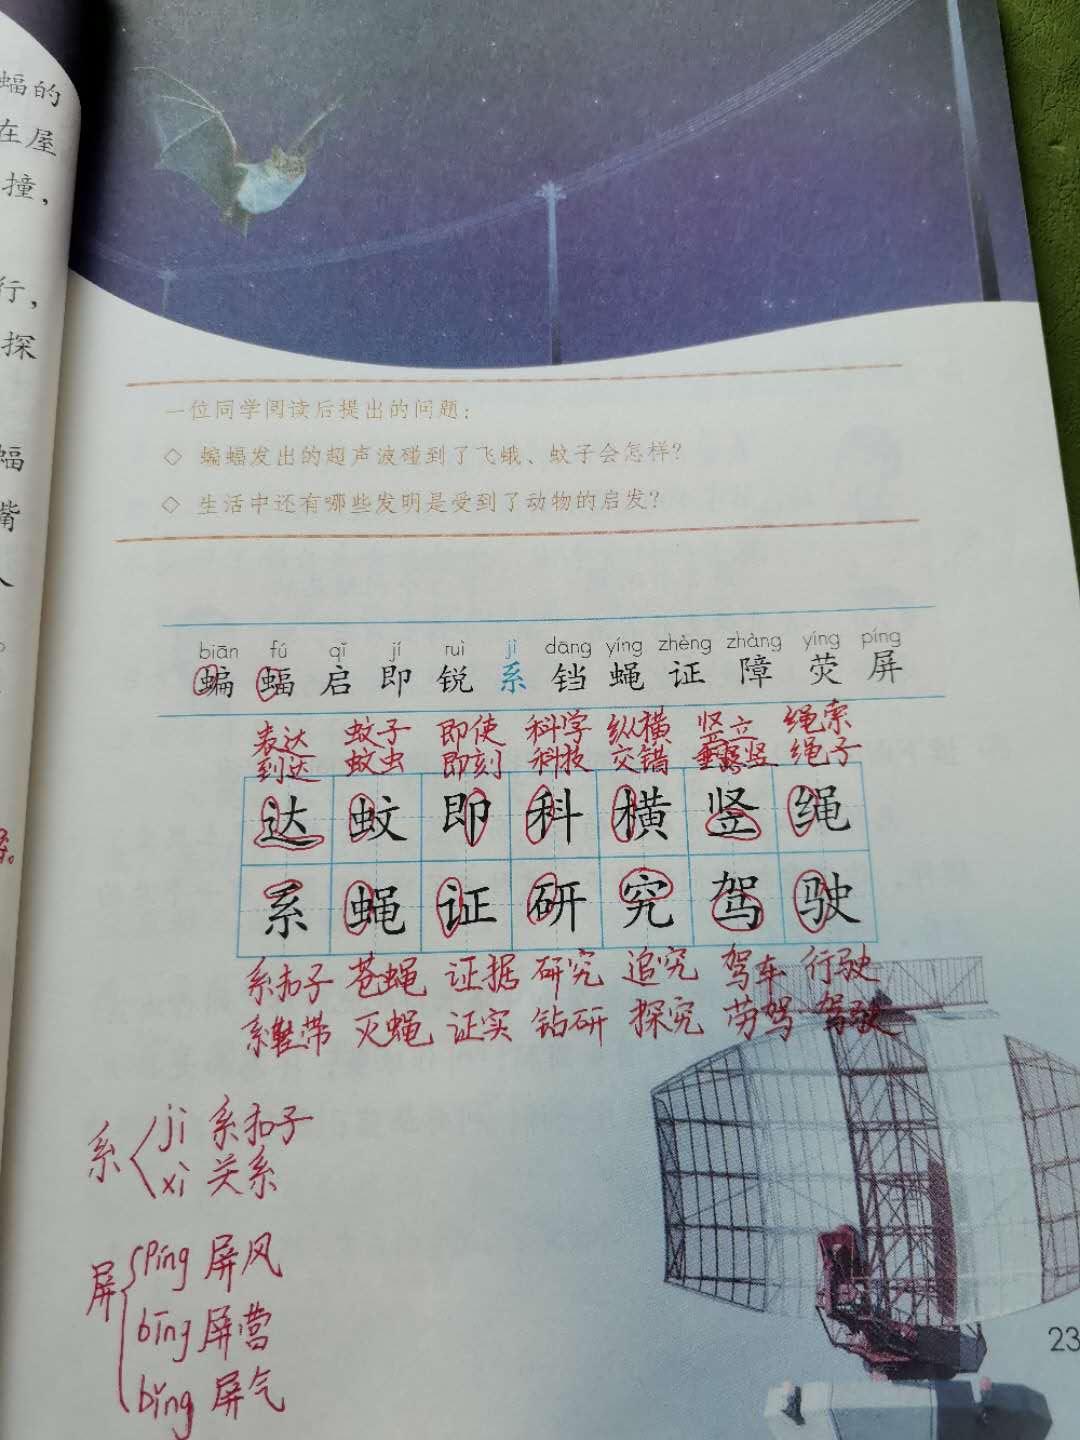 蝠的
在屋
撞，
行，
探
蝠
嘴
一位同学阅读后提出的问题：
◇ 蝙蝠发出的超声波碰到了飞蛾、蚊子会怎样？
◇ 生活中还有哪些发明是受到了动物的启发？
biān fú qǐ jí ruì jì dāng yíng zhèng zhàng yíng píng
蝙 蝠 启 即 锐 系 铛 蝇 证 障 荧 屏
表达 蚊子 即使 科学 纵横 竖立 绳索
到达 蚊虫 即刻 科技 交错 竖 绳子
达 蚊 即 科 横 竖 绳
系 蝇 证 研 究 驾 驶
系扣子 苍蝇 证据 研究 追究 驾车 行驶
系鞋带 灭蝇 证实 钻研 探究 劳驾 驾驶
系 jì 系扣子
xì 关系
屏 píng 屏风
bīng 屏营
bǐng 屏气
23